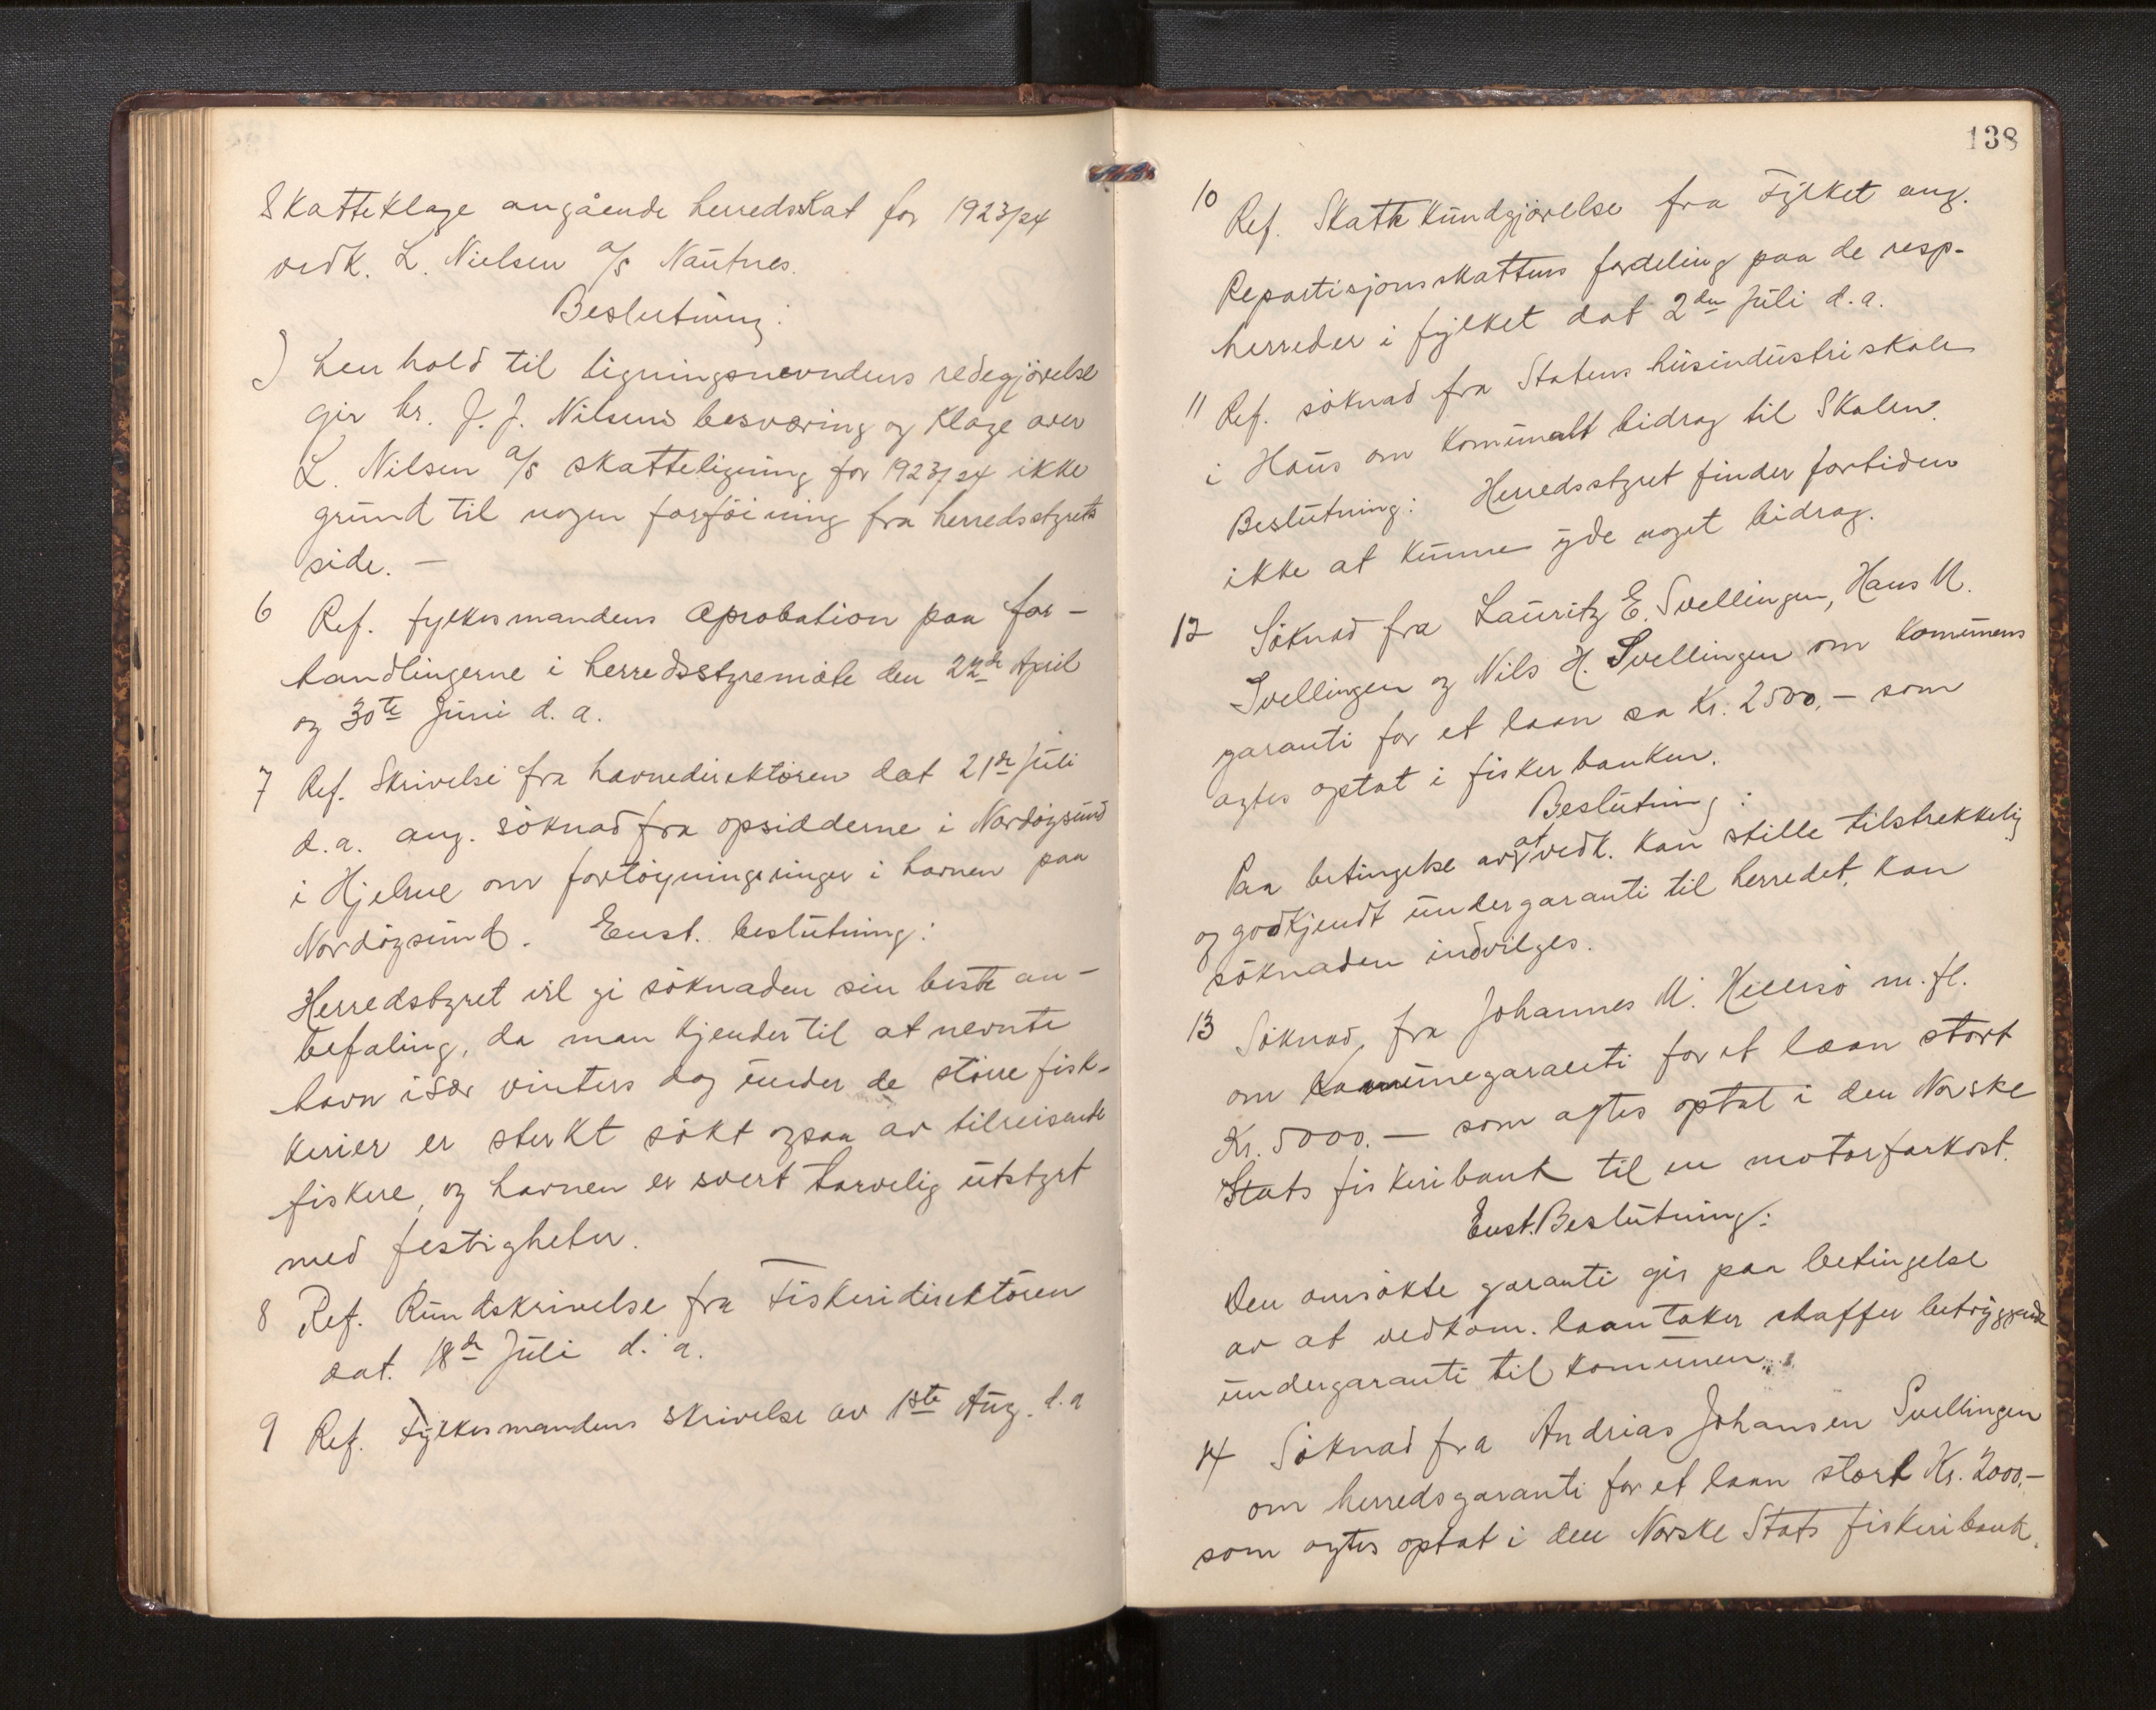 Skatteklage angående herredsskat for 1923/24
vedk. L. Nielsen a/s Nautnes.
Beslutning:
I henhold til ligningsnevndens redegjörelse
gir hr. J. J. Nilsens besværing og klage over
L. Nilsen a/s skatteligning for 1923/24 ikke
grund til nogen forföining fra herredsstyrets
side. —
6 Ref. fylkesmandens aprobation paa for-
handlingerne i herredsstyremöte den 22de April
og 30te Juni d. a.
7 Ref. Skrivelse fra havnedirektören dat 21de Juli
d. a. ang. söknad fra opsidderne i Nordöysund
i Hjelme om fortöyningsringer i havnen paa
Nordöysund. Enst. beslutning:
Herredstyret vil gi söknaden sin beste an-
befaling, da man kjender til at nevnte
havn især vinters dag under de större fisk-
kerier er sterkt sökt ogsaa av tilreisende
fiskere, og havnen er svert tarvelig utstyrt
med festigheter.
8 Ref. Rundskrivelse fra Fiskeridirektören
dat. 18de Juli d. a.
9 Ref. Fylkesmandens skrivelse av 1ste Aug. d. a
138
10 Ref. Skatte kundgjörelse fra Fylket ang.
Repartisjonsskattens fordeling paa de resp.
herreder i fylket dat 2den Juli d. a.
11 Ref. söknad fra Statens husindustriskole
i Haus om komunalt bidrag til Skolen.
Beslutning: Herredsstyret finder fortiden
ikke at kunne yde noget bidrag.
12 Söknad fra Lauritz E. Svellingen, Hans M.
Svellingen og Nils H. Svellingen om komunens
garanti for et laan sa Kr. 2500,- som
agtes optat i fisker banken.
Beslutning:
Paa betingelse av at vedk. kan stille tilstrekkelig
og godkjendt undergaranti til herredet, kan
söknaden indvilges.
13 Söknad fra Johannes M. Hellisö m. fl.
om Komunegaranti for et laan stort
Kr. 5000.— som agtes optat i den Norske
Stats fiskeribank til en motorfarkost.
Enst. Beslutning:
Den omsökte garanti gis paa betingelse
av at vedkom. laantaker skaffer betryggende
undergaranti til komunen.
14 Söknad fra Andrias Johansen Svellingen
om herredsgaranti for et laan stort Kr. 2000,-
som agtes optat i den Norske Stats fiskeribank.